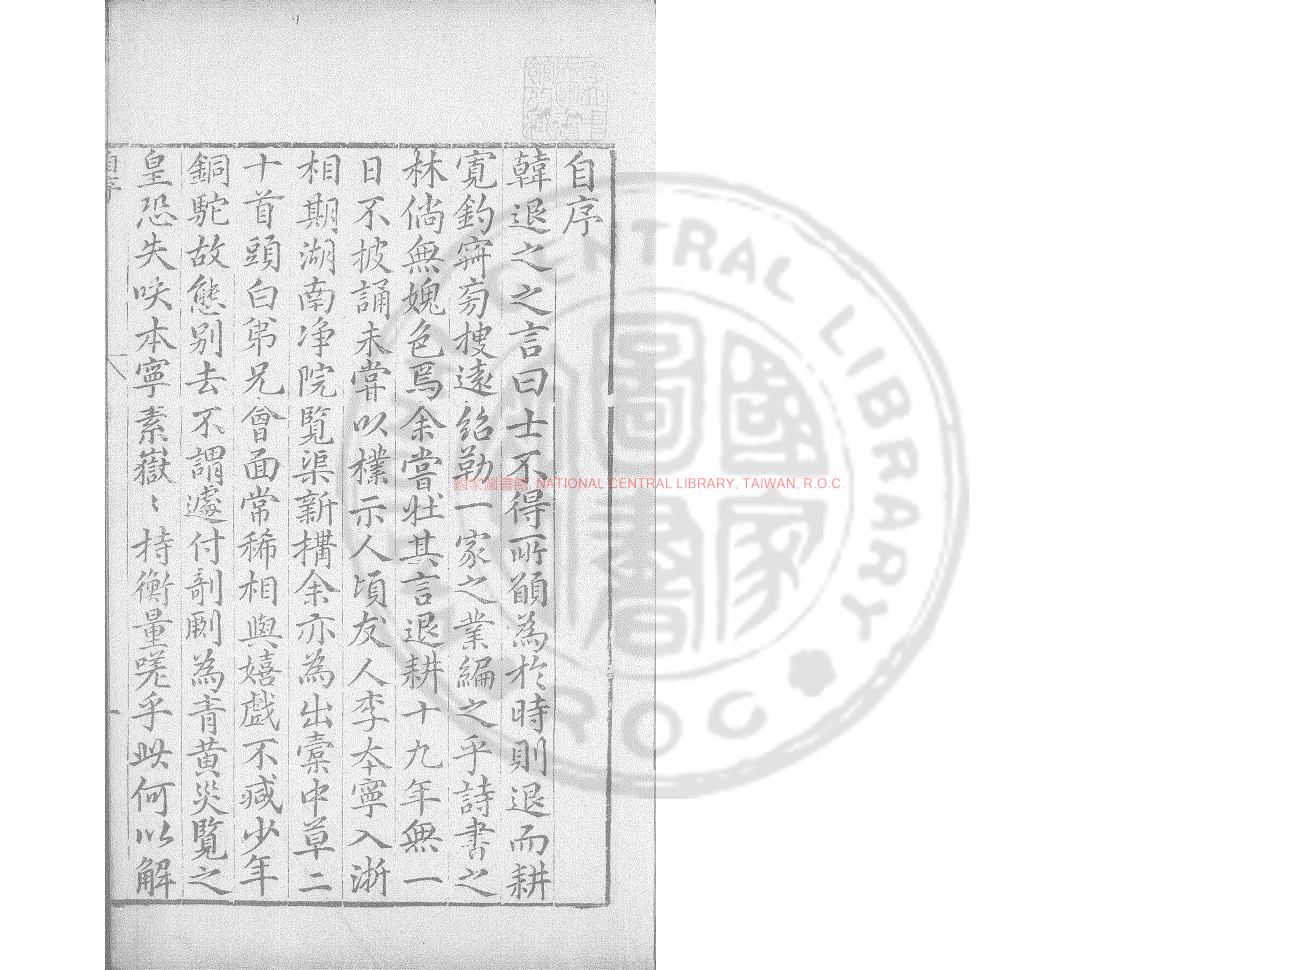 自序
韓退之之言曰士不得所願為於時則退而耕
寛釣窮旁搜遠紹勒一家之業編之乎詩書之
林倘無媿色焉余嘗壯其言退耕十九年無一
日不披誦未嘗以樸示人頃友人李本寧入浙
相期湖南净院覽渠新構余亦為出槖中草二
十首頭白弟兄會面常稀相與嬉戲不減少年
銅駝故態別去不謂遽付剞劂為青黄災覽之
皇恐失咲本寧素嶽〻持衡量嗟乎此何以解
自序
國家圖書館 NATIONAL CENTRAL LIBRARY, TAIWAN, R.O.C.
NATIONAL CENTRAL LIBRARY
ROC
國家圖書